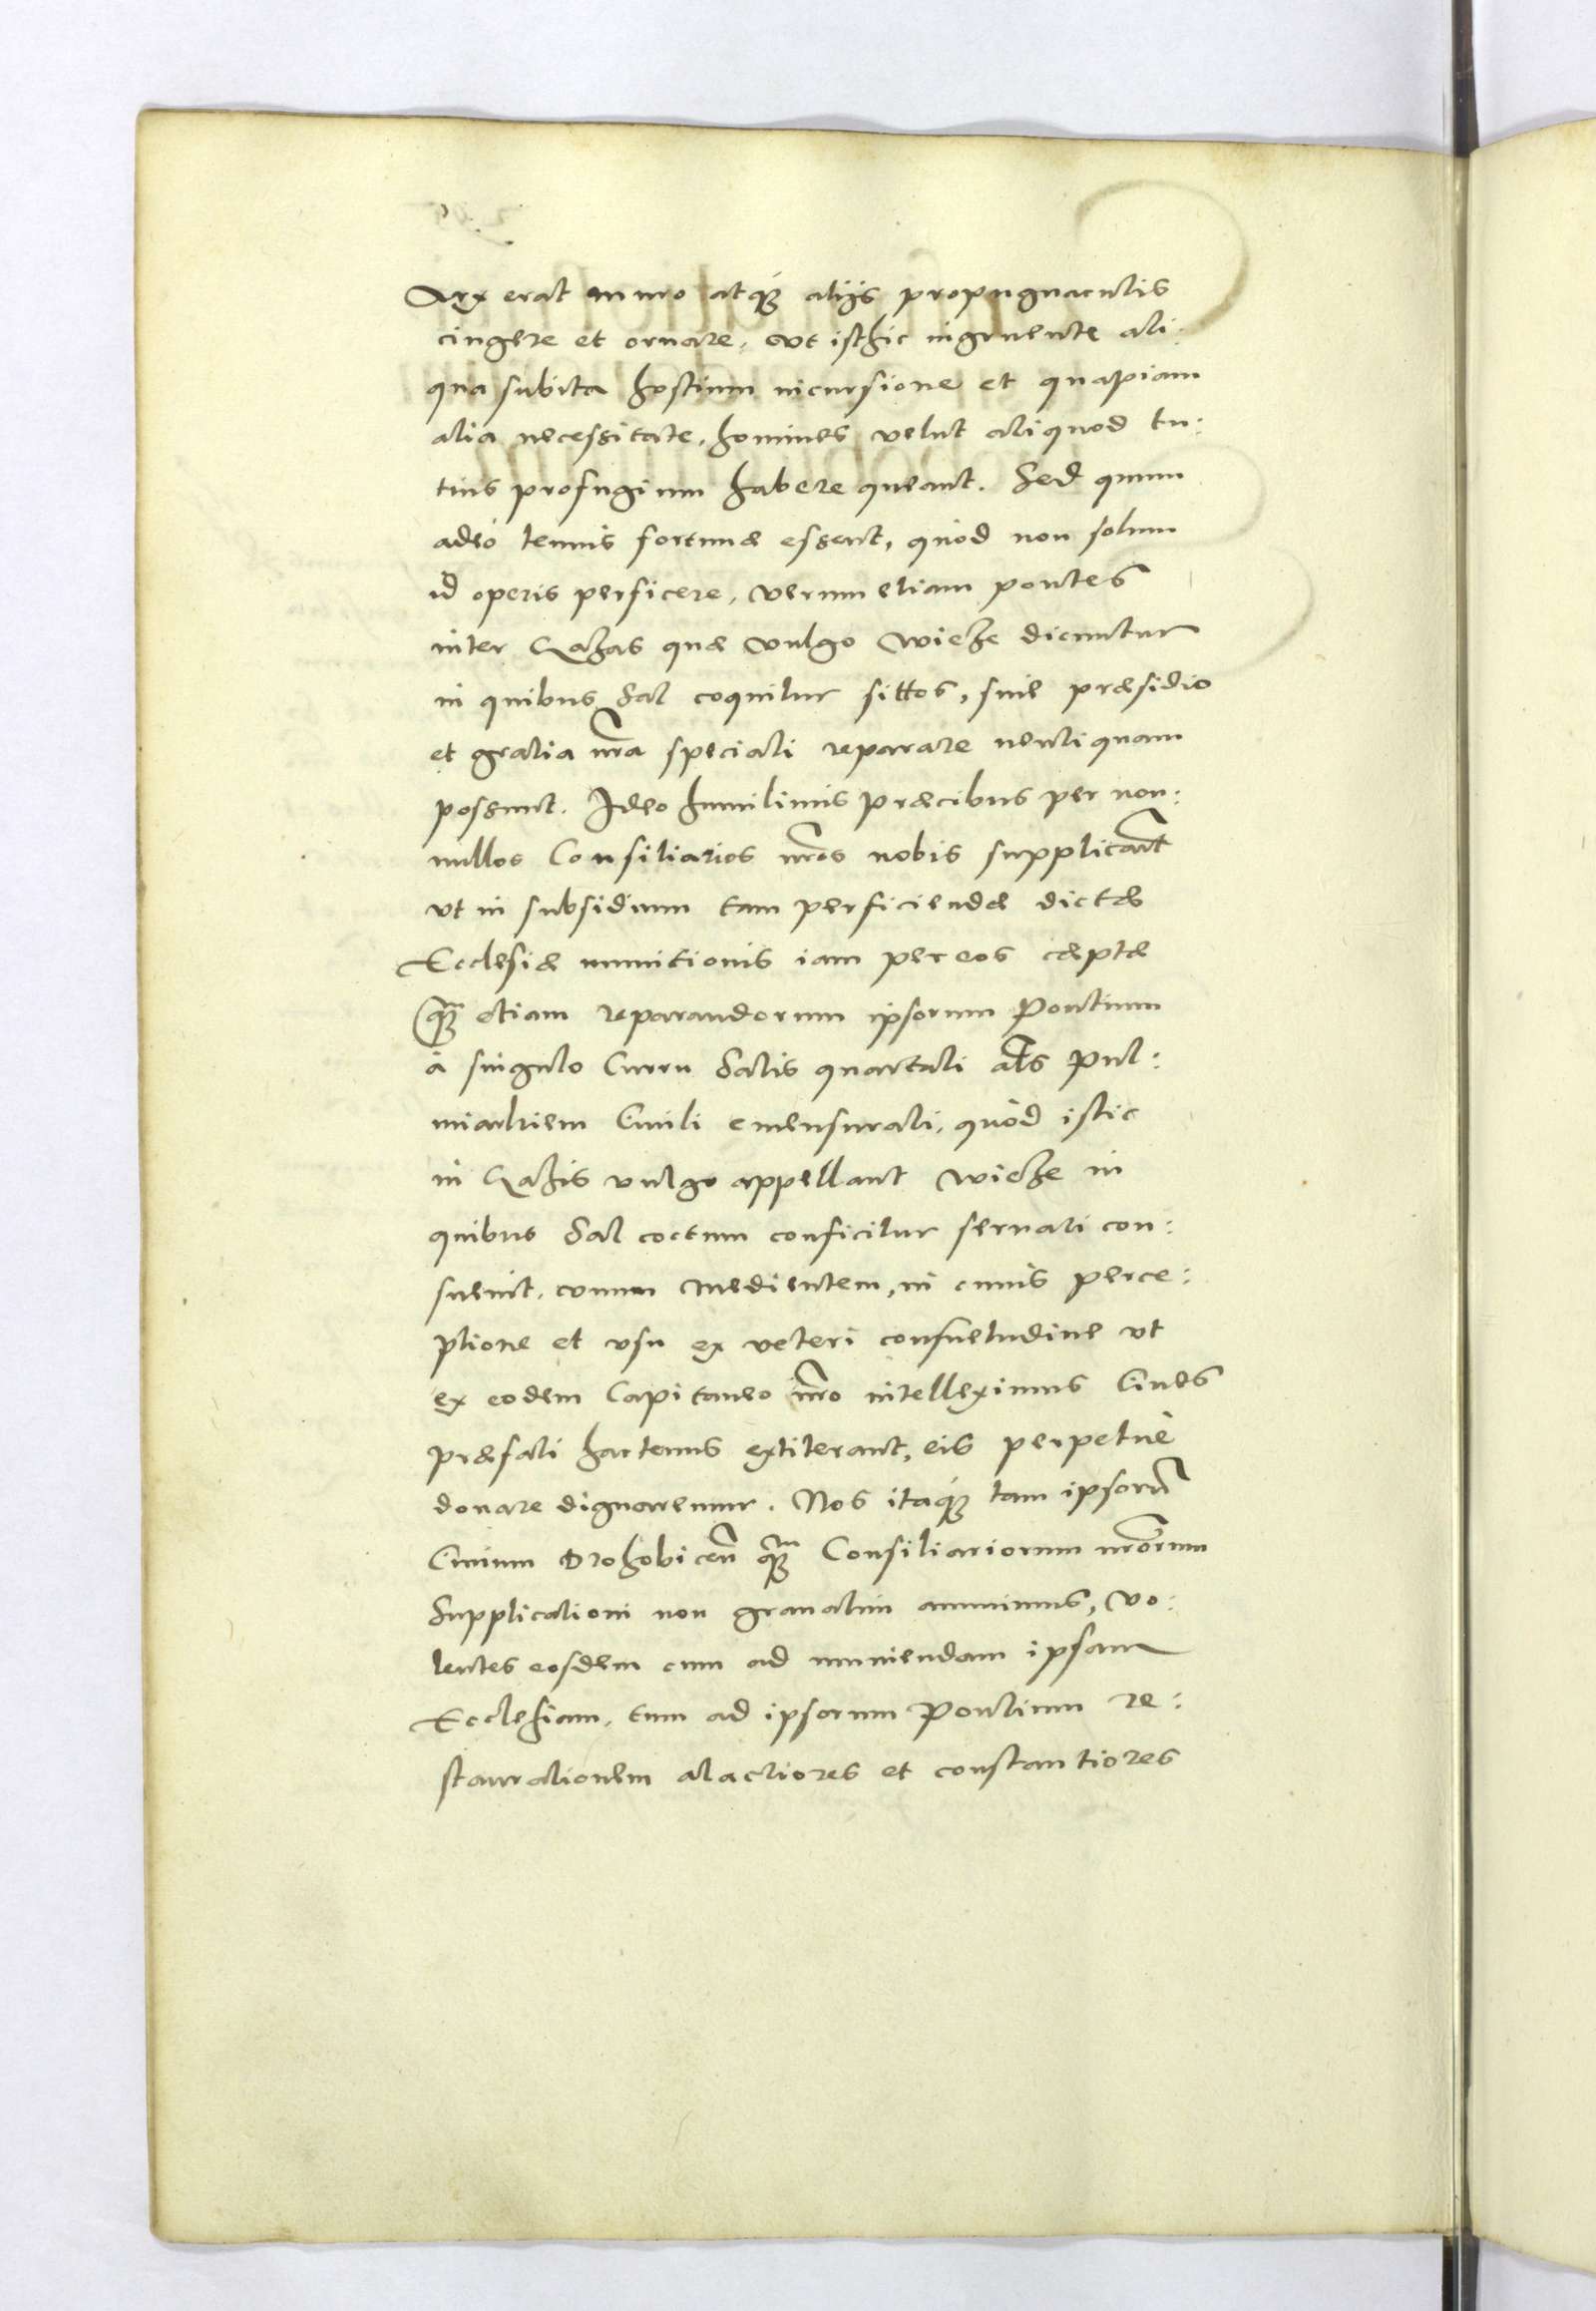 Arx erat muro atq́ꝫ alijs propugnaculis
cingere et ornare, vt isthic ingruente ali:
qua subita hostium incursione et quapiam
alia necessitate, homines velut aliquod tu:
tius profugium habere queant. Sed quum
adeò tenuis fortunæ essent, quòd non solum
id operis perficere, verum etiam pontes
inter Cazas quæ vulgo Wieże dicuntur
in quibus Sal coquitur sittos, sine præsidio
et gratia nr̃a speciali reparare neutiquam
possunt. Ideo humilimis præcibus per non:
nullos Consiliarios nr̃os nobis supplicar̃t
vt in subsidium tam perficiendæ dictæ
Ecclesiæ munitionis iam per eos cæptæ
qꝫ̃ etiam reparandorum ipsorum Pontium
à singulo Curru Salis quartali al̃s Pul:
miarkiem Ciuili emensurali, quòd istic
in Cazis vulgo appellant Wieże in
quibus Sal coctum conficitur seruari con:
sueuit, vnum Medientem, in cuius perce:
ptione et vsu ex veteri consuetudine vt
ex eodem Capitaneo nr̃o intelleximus Ciues
præfati hactenus extiterant, eis perpetuè
donare dignaremur. Nos itaq́ꝫ tam ipsorũ
Ciuium Drohobiceñ qꝫ̃ Consiliariorum nr̃orum
Supplicationi non grauatim annuimus, vo:
lentes eosdem cum ad muniendam ipsam
Ecclesiam, tum ad ipsorum Pontium re:
staurationem alacriores et constantiores